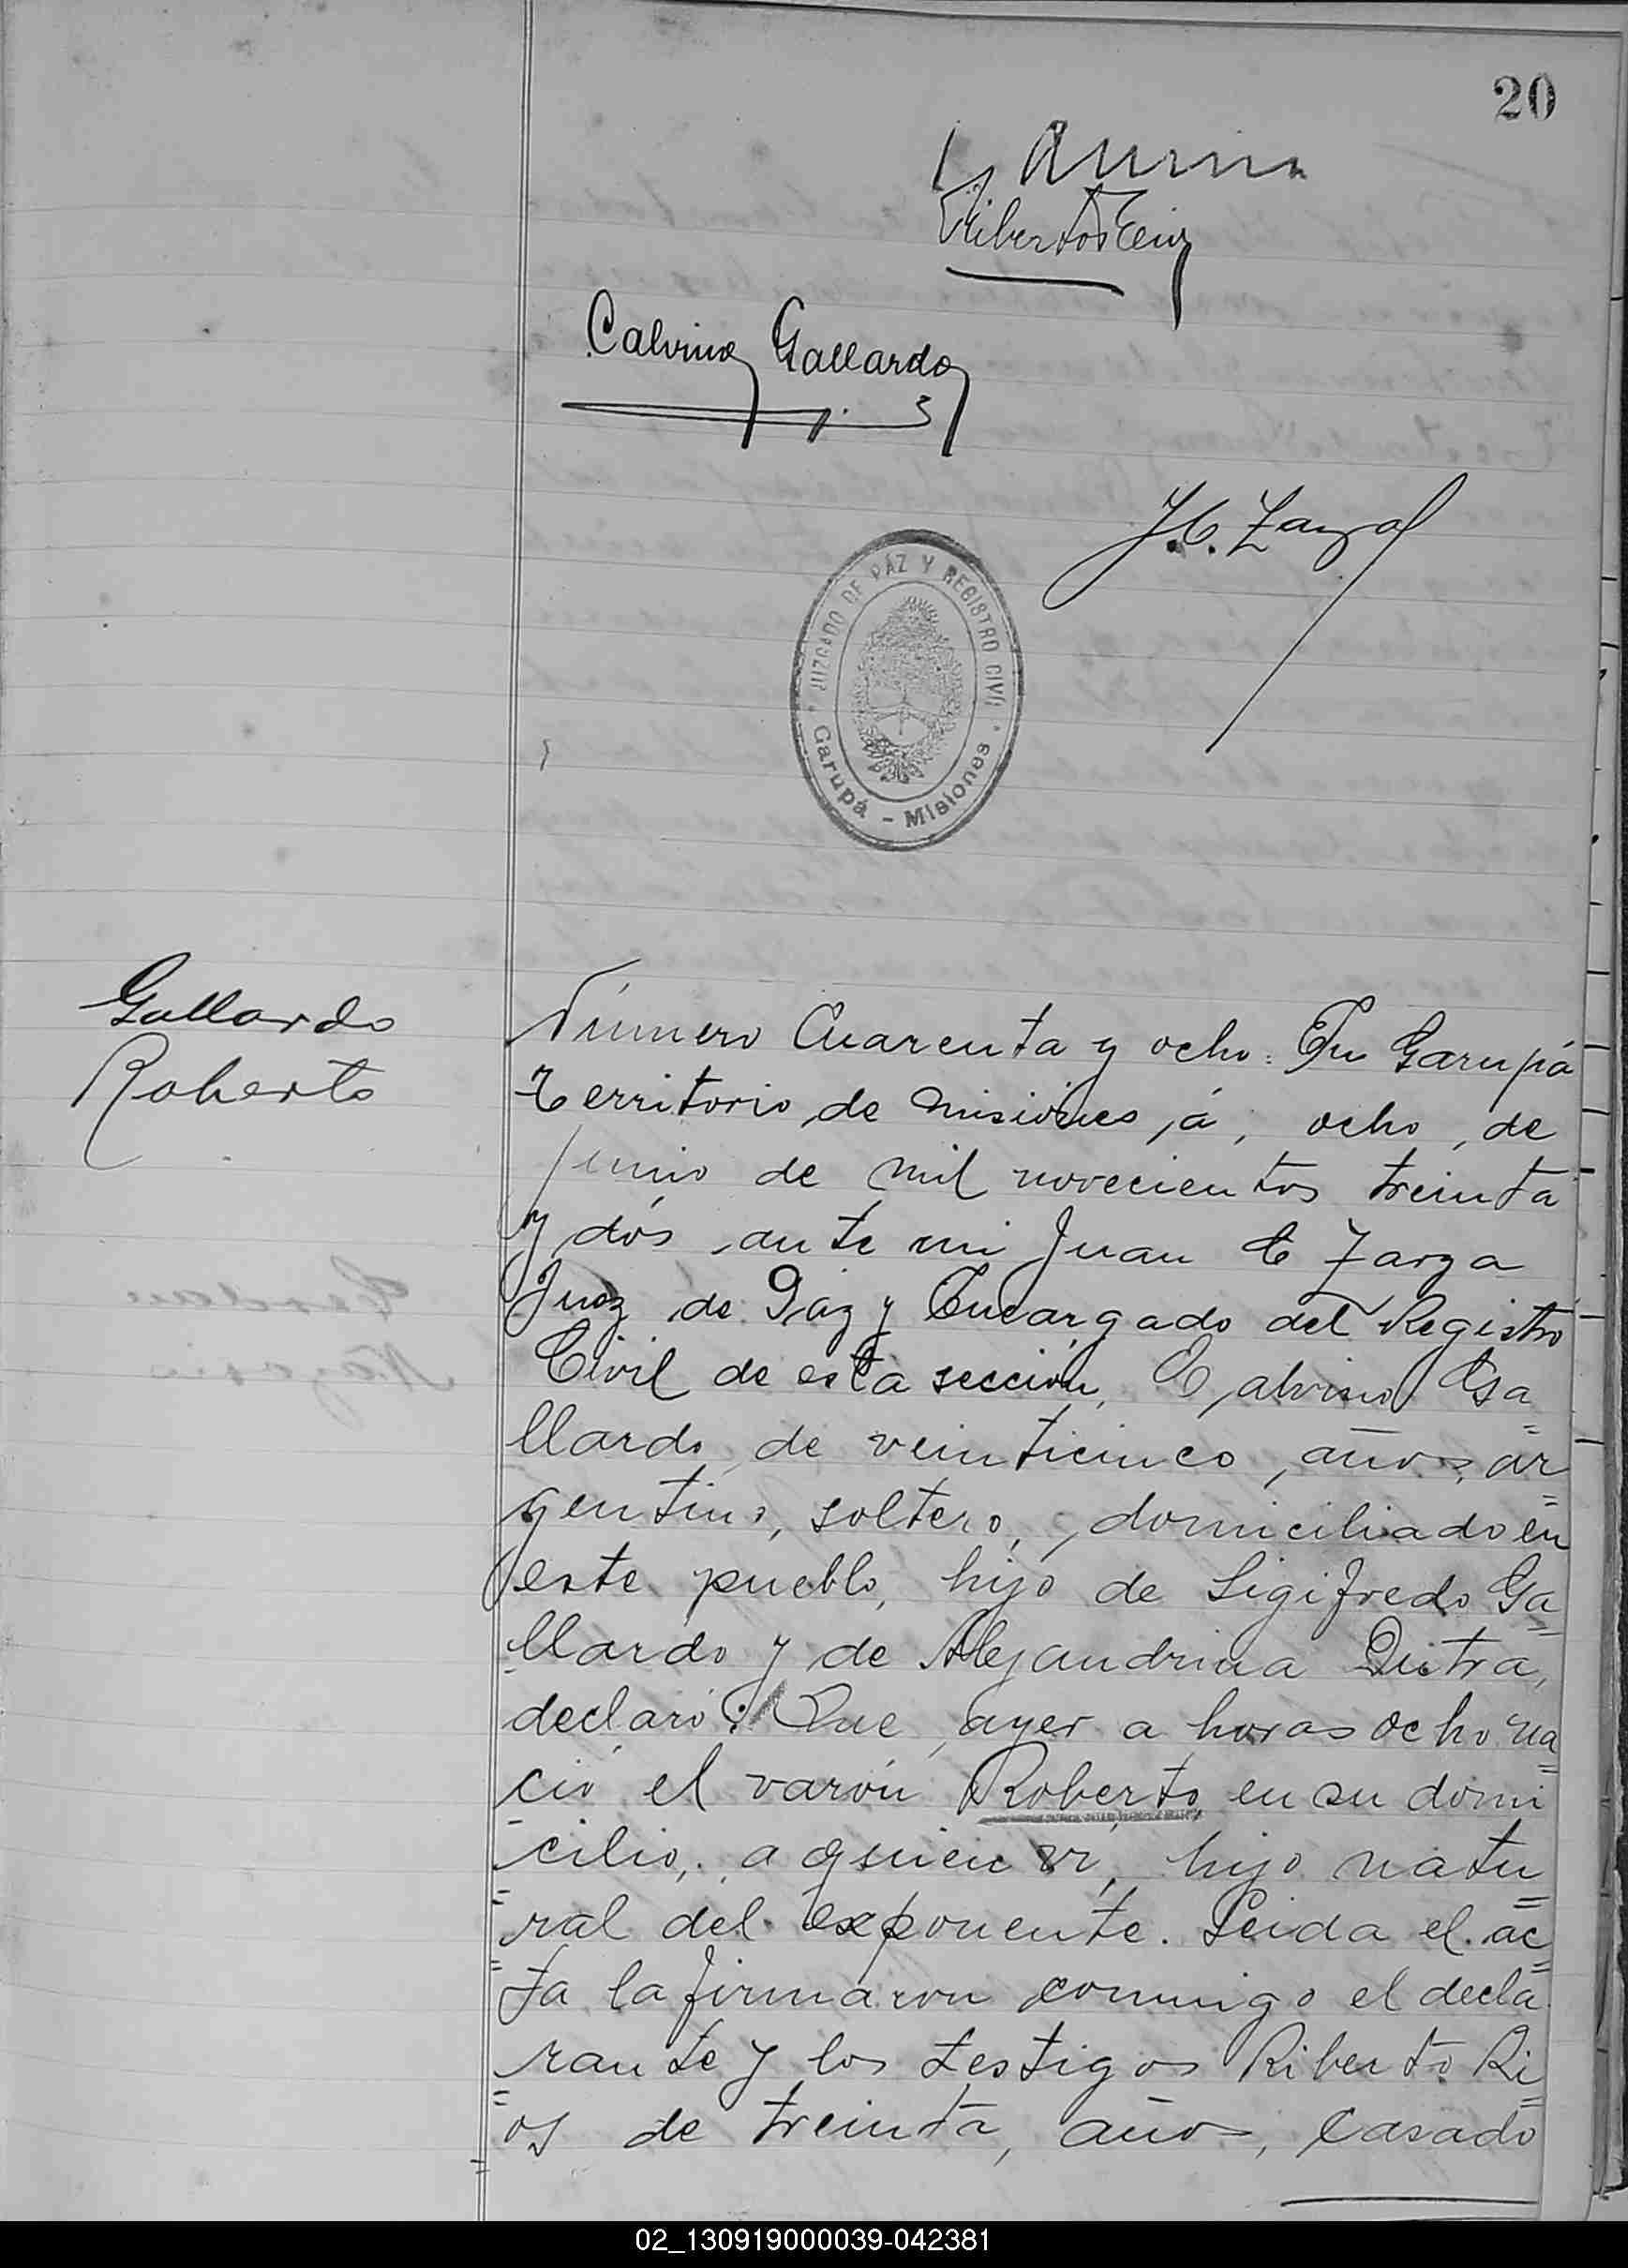 20
Calvino Gallardo
J. C. Zarza
JUZGADO DE PAZ Y REGISTRO CIVIL
Garupá - Misiones
Gallardo
Roberto
Número Cuarenta y ocho: En Garupá
Territorio de Misiones, á, ocho, de
junio de mil novecientos treinta
y dós, ante mi Juan C Zarza
Juez de Páz y Encargado del Registro
Civil de esta sección, Calvino Ga
llardo, de veinticinco, años, ar=
gentino, soltero, domiciliado en
este pueblo, hijo de Sigifredo Ga=
llardo y de Alejandrina Dutra,
declaró: Que, ayer a horas ocho na=
ció el varón Roberto en su domi
cilio, a quien vi, hijo natu=
ral del exponente. Leida el ac=
ta la firmaron conmigo el decla
rante y los testigos Riberto Ri=
os de treinta, años, casado
02_130919000039-042381